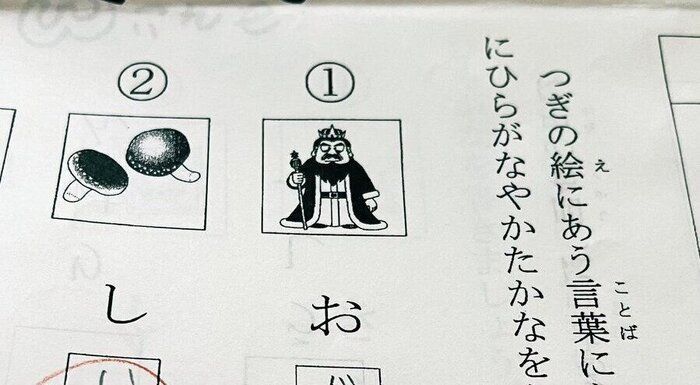 つぎの絵にあう言葉に
え
ことば
にひらがなやかたかなを
①
お
②
し
い